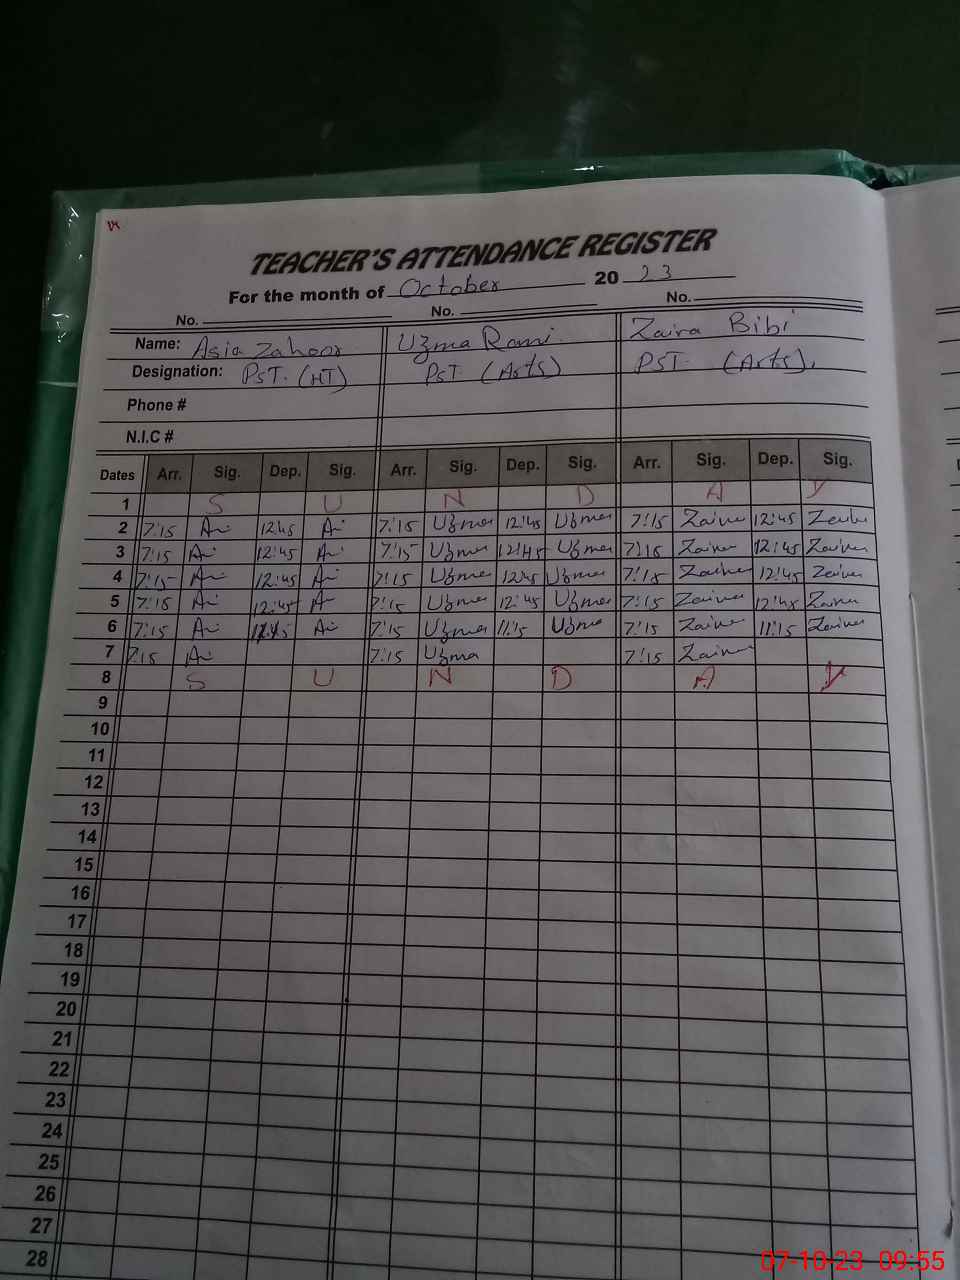 TEACHER'S ATTENDANCE REGISTER
For the month of October 20 23
No. No. No.
Name: Asia Zahoor Uzma Rani Zaira Bibi
Designation: PST. (HT) PST (Arts) PST. (Arts).
Phone #
N.I.C #
Dates Arr. Sig. Dep. Sig. Arr. Sig. Dep. Sig. Arr. Sig. Dep. Sig.
1 S U N D A Y
2 7:15 12:45 7:15 Uzma 12:45 Uzma 7:15 Zaira 12:45 Zaira
3 7:15 12:45 7:15 Uzma 12:45 Uzma 7:15 Zaira 12:45 Zaira
4 7:15 12:45 7:15 Uzma 12:45 Uzma 7:15 Zaira 12:45 Zaira
5 7:15 12:45 7:15 Uzma 12:45 Uzma 7:15 Zaira 12:45 Zaira
6 7:15 7:15 Uzma 11:15 Uzma 7:15 Zaira 11:15 Zaira
7 7:15 7:15 Uzma 7:15 Zaira
8 S U N D A Y
9
10
11
12
13
14
15
16
17
18
19
20
21
22
23
24
25
26
27
28
07-10-23 09:55